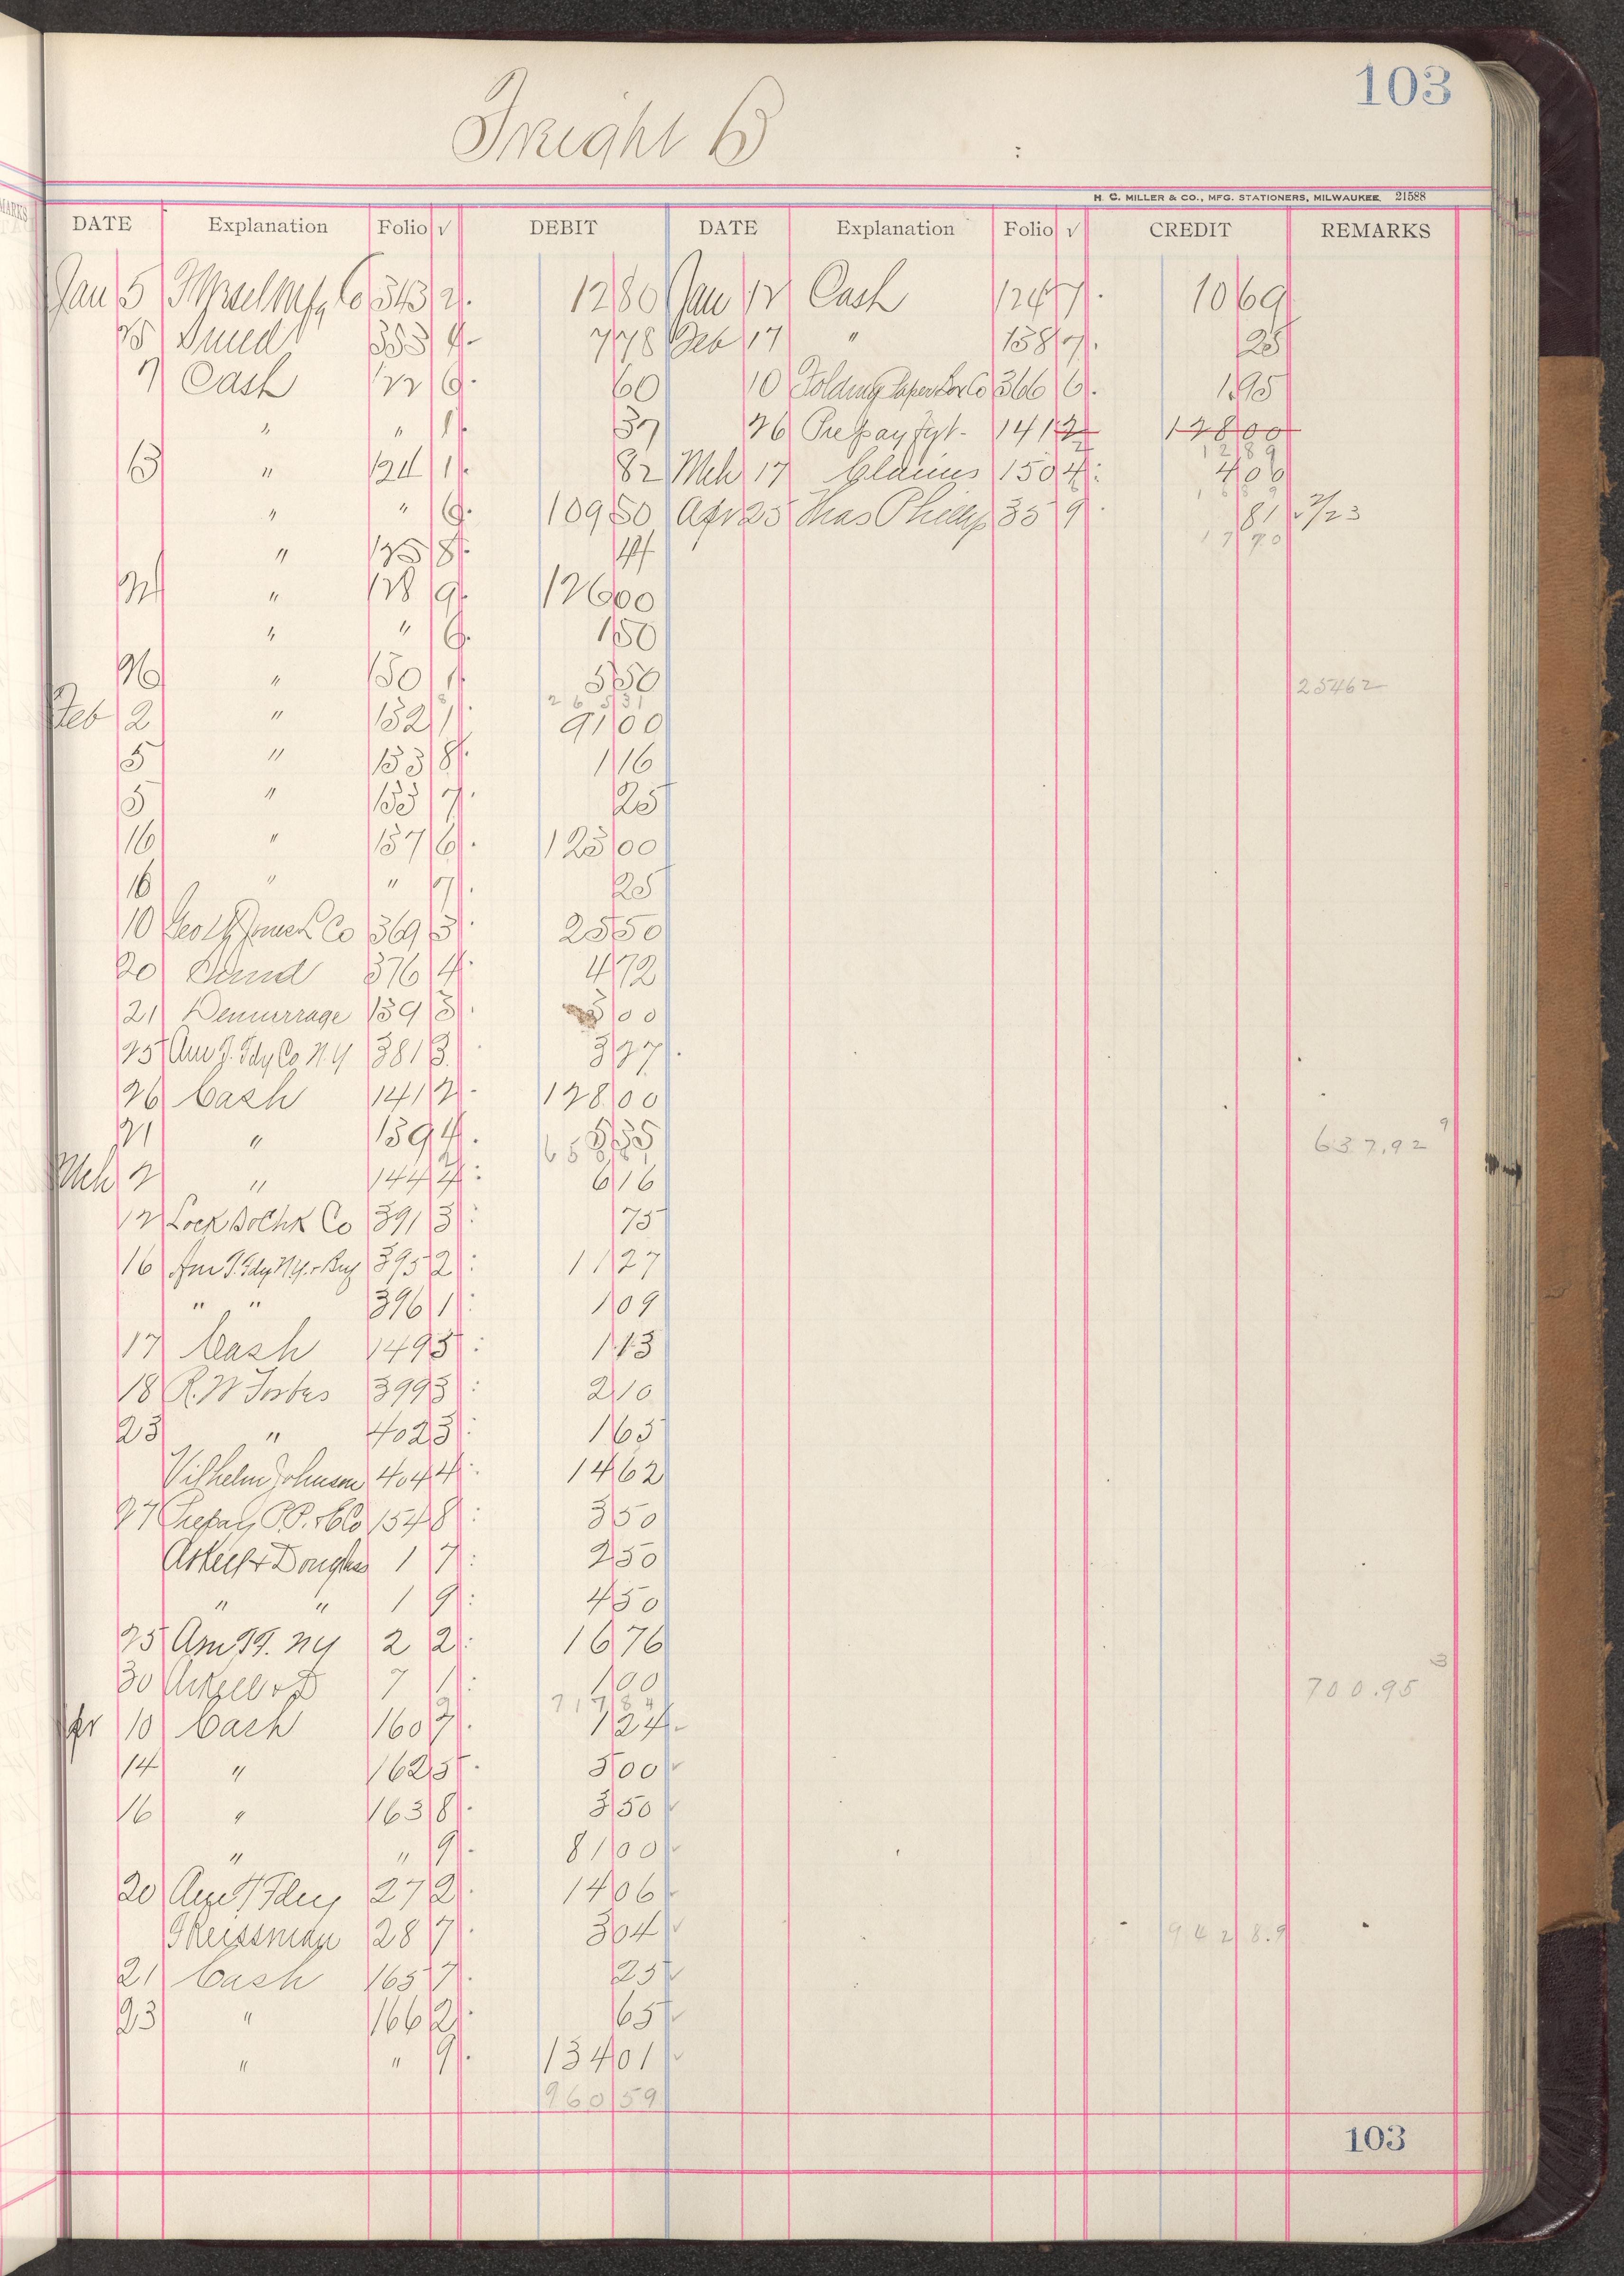 103
Freight B
H. C. MILLER & CO., MFG. STATIONERS, MILWAUKEE 21588
DATE Explanation Folio √ DEBIT DATE Explanation Folio √ CREDIT REMARKS
Jan 5 Co 343 2. 12 80 Jan 12 Cash 124 7. 10 69
353 4- 7 78 Feb 17 " 138 7. 25
7 Cash 122 6. 60 10 Folding Paper Box Co 366 6. 1.95
" " 1. 37 26 Prepay Fgt. 141 2 128 00
12 89
13 " 124 1. 82 Mch 17 Claims 150 4: 4 00
16 89
" " 6. 109 50 Apr 25 Chas Phelps 35 9 81 3/23
17 70
" 125 8. 44
24 " 128 9. 126 00
" " 6. 1 50
26 " 130 1. 5 50 254 62
265 31
Feb 2 " 132 1. 91 00
5 " 133 8. 1 16
5 " 133 7. 25
16 " 137 6. 125 00
16 " " 7. 25
10 Co 369 3. 25 50
20 376 4. 4 72
21 Demurrage 139 3. 3 00
25 Am T. Fdy Co N.Y 381 3. 3 27.
26 Cash 141 2. 128 00
21 " 139 4. 5 35 637.92 9
Mch 2 " 144 4: 6 16
12 Co 391 3: 75
16 Am T. Fdy N.Y. 395 2: 11 27
" " 396 1: 1 09
17 Cash 149 5: 1.13
18 R. W Forbes 399 3: 2 10
23 " 402 3: 1 65
Vilhelm Johnson 404 4: 14 62
27 Prepay P.P. & Co 154 8: 3 50
Askell & Douglass 1 7: 2 50
" " 1 9: 4 50
25 Am T F. NY 2 2: 16 76
30 Askell & D 7 1: 1 00 700.95 3
717 84
Apr 10 Cash 160 7. 1 24-
14 " 162 5. 5 00 √
16 " 163 8. 3 50 √
" " 9. 81 00 √
20 Am T Fdry 27 2. 14 06 √
Reissman 28 7. 3 04 √ 942 8.9
21 Cash 165 7. 25 √
23 " 166 2. 65 √
" " 9. 134 01 √
960 59
103